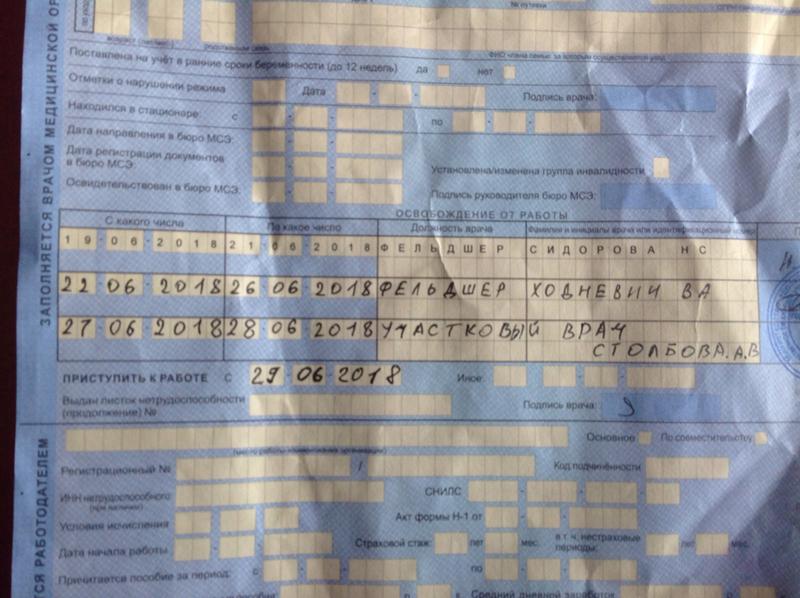 № путёвки
Поставлена на учёт в ранние сроки беременности (до 12 недель) да нет
Отметки о нарушении режима Дата Подпись врача:
Находился в стационаре: с по
Дата направления в бюро МСЭ:
Дата регистрации документов
в бюро МСЭ: Установлена/изменена группа инвалидности
Освидетельствован в бюро МСЭ: Подпись руководителя бюро МСЭ:
ОСВОБОЖДЕНИЕ ОТ РАБОТЫ
С какого числа По какое число Должность врача Фамилия и инициалы врача или идентификационный номер
19-06-2018 21-06-2018 ФЕЛЬДШЕР СИДОРОВА НС
22 06 2018 26 06 2018 ФЕЛЬДШЕР ХОДНЕВИЧ ВА
27 06 2018 28 06 2018 УЧАСТКОВЫЙ ВРАЧ
СТОЛБОВА.А.В
ПРИСТУПИТЬ К РАБОТЕ с 29 06 2018 Иное:
Выдан листок нетрудоспособности
(продолжение) № Подпись врача:
Основное По совместительству
(место работы - наименование организации)
Регистрационный № / Код подчинённости
ИНН нетрудоспособного
(при наличии) СНИЛС
Условия исчисления Акт формы Н-1 от
Дата начала работы Страховой стаж: лет мес. в т.ч. нестраховые
периоды: лет мес.
Причитается пособие за период: с по
Средний дневной заработок
ЗАПОЛНЯЕТСЯ ВРАЧОМ МЕДИЦИНСКОЙ ОР
СЯ РАБОТОДАТЕЛЕМ